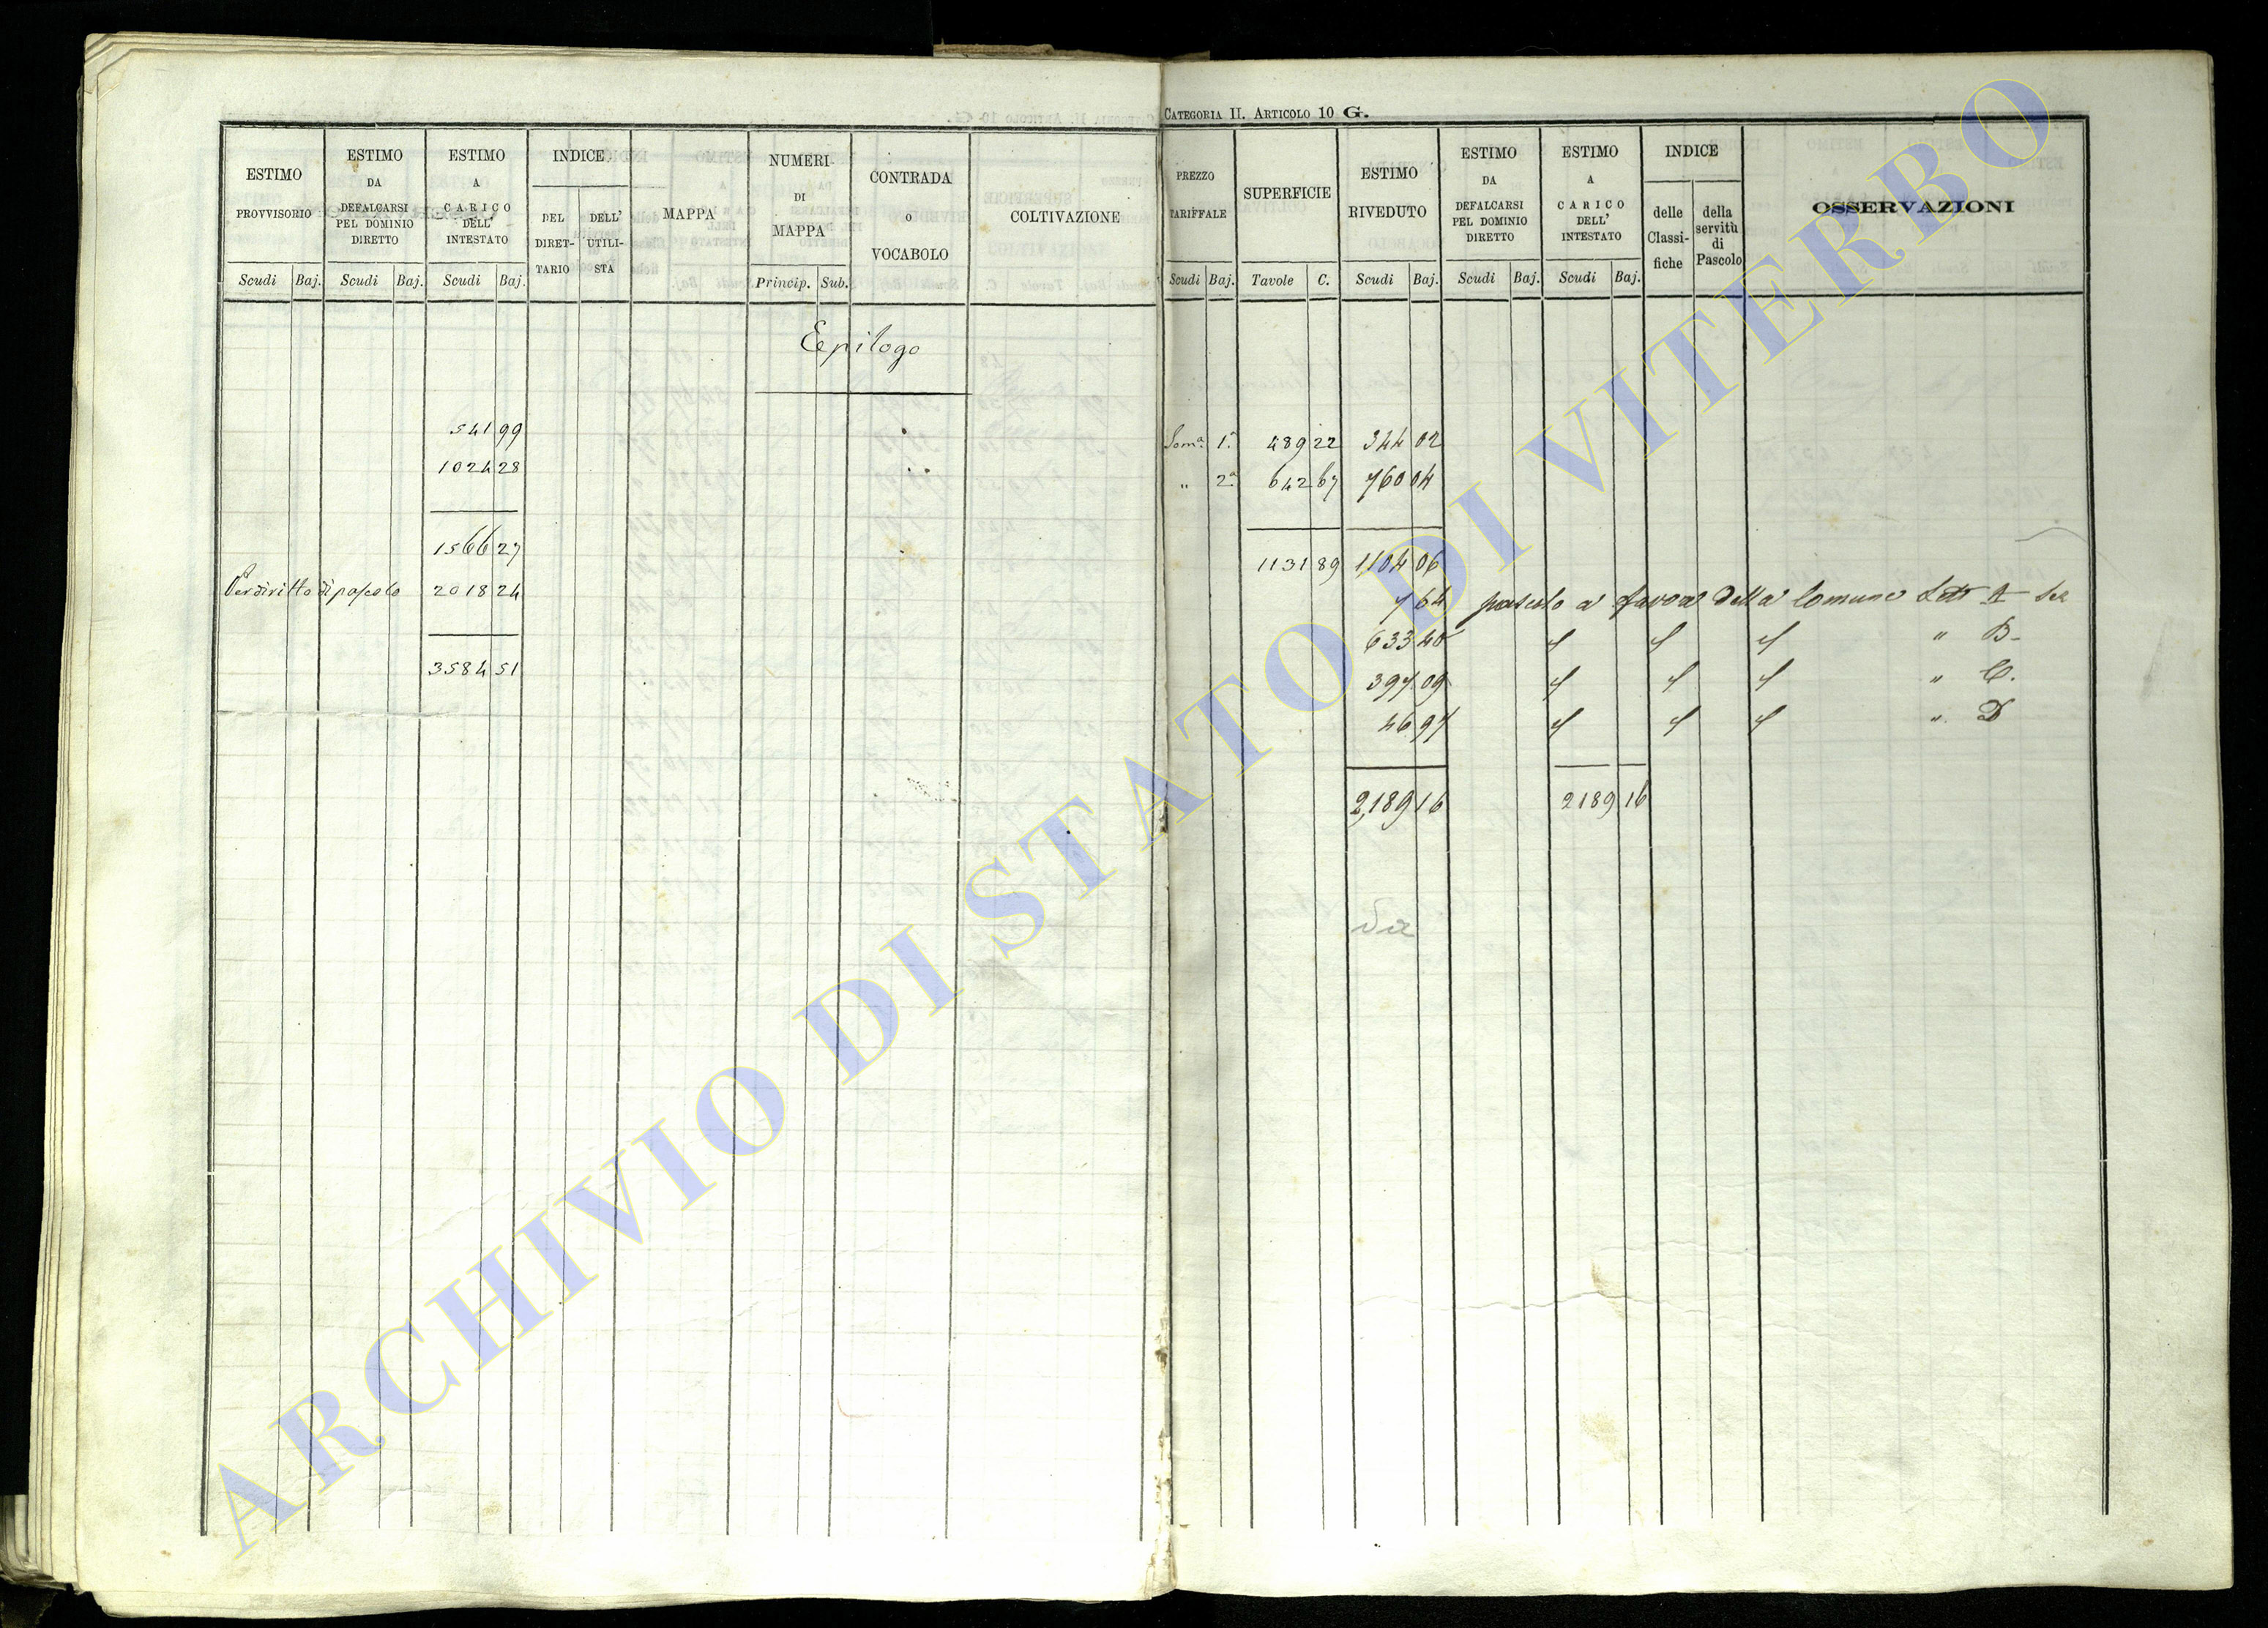 CATEGORIA II. ARTICOLO 10 G.
ESTIMO PROVVISORIO
Scudi Baj.
ESTIMO DA DEFALCARSI PEL DOMINIO DIRETTO
Scudi Baj.
ESTIMO A CARICO DELL' INTESTATO
Scudi Baj.
INDICE
DEL DIRET-TARIO
DELL' UTILI-STA
MAPPA
NUMERI DI MAPPA
Princip. Sub.
CONTRADA O VOCABOLO
COLTIVAZIONE
Epilogo
541 99
1024 28
1566 27
Per diritto di pascolo 2018 24
3584 51
PREZZO TARIFFALE
Scudi Baj.
SUPERFICIE
Tavole C.
ESTIMO RIVEDUTO
Scudi Baj.
ESTIMO DA DEFALCARSI PEL DOMINIO DIRETTO
Scudi Baj.
ESTIMO A CARICO DELL' INTESTATO
Scudi Baj.
INDICE
delle Classi-fiche
della servitù di Pascolo
OSSERVAZIONI
Som.a 1.a 489 22 344 02
" 2.a 642 67 760 04
1131 89 1104 06
7 64 pascolo a favore della Comune Lett A
633 40 " " " " B
397 09 " " " " C.
46 97 " " " " D
2189 16 2189 16
ARCHIVIO DI STATO DI VITERBO